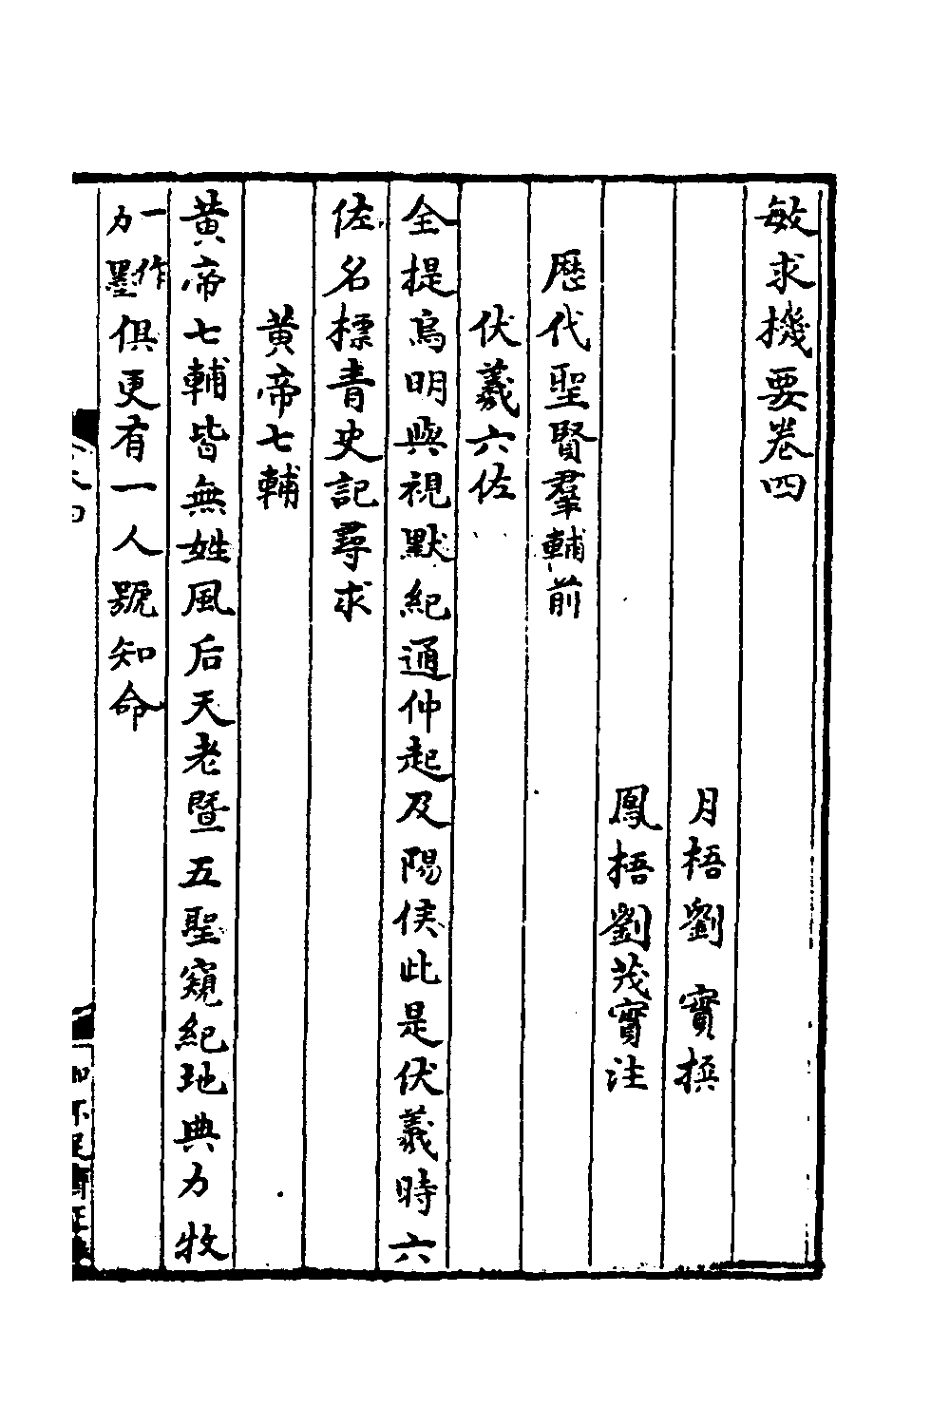 敏求機要卷四
月梧劉 實撰
鳳梧劉茂實注
歷代聖賢羣輔前
伏羲六佐
全提烏明與視默紀通仲起及陽侯此是伏羲時六
佐名標青史記尋求
黃帝七輔
黃帝七輔皆無姓風后天老暨五聖窺紀地典力牧
一作力墨俱更有一人號知命